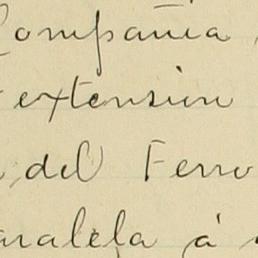 Compañia
extension
del Ferro
paralela á